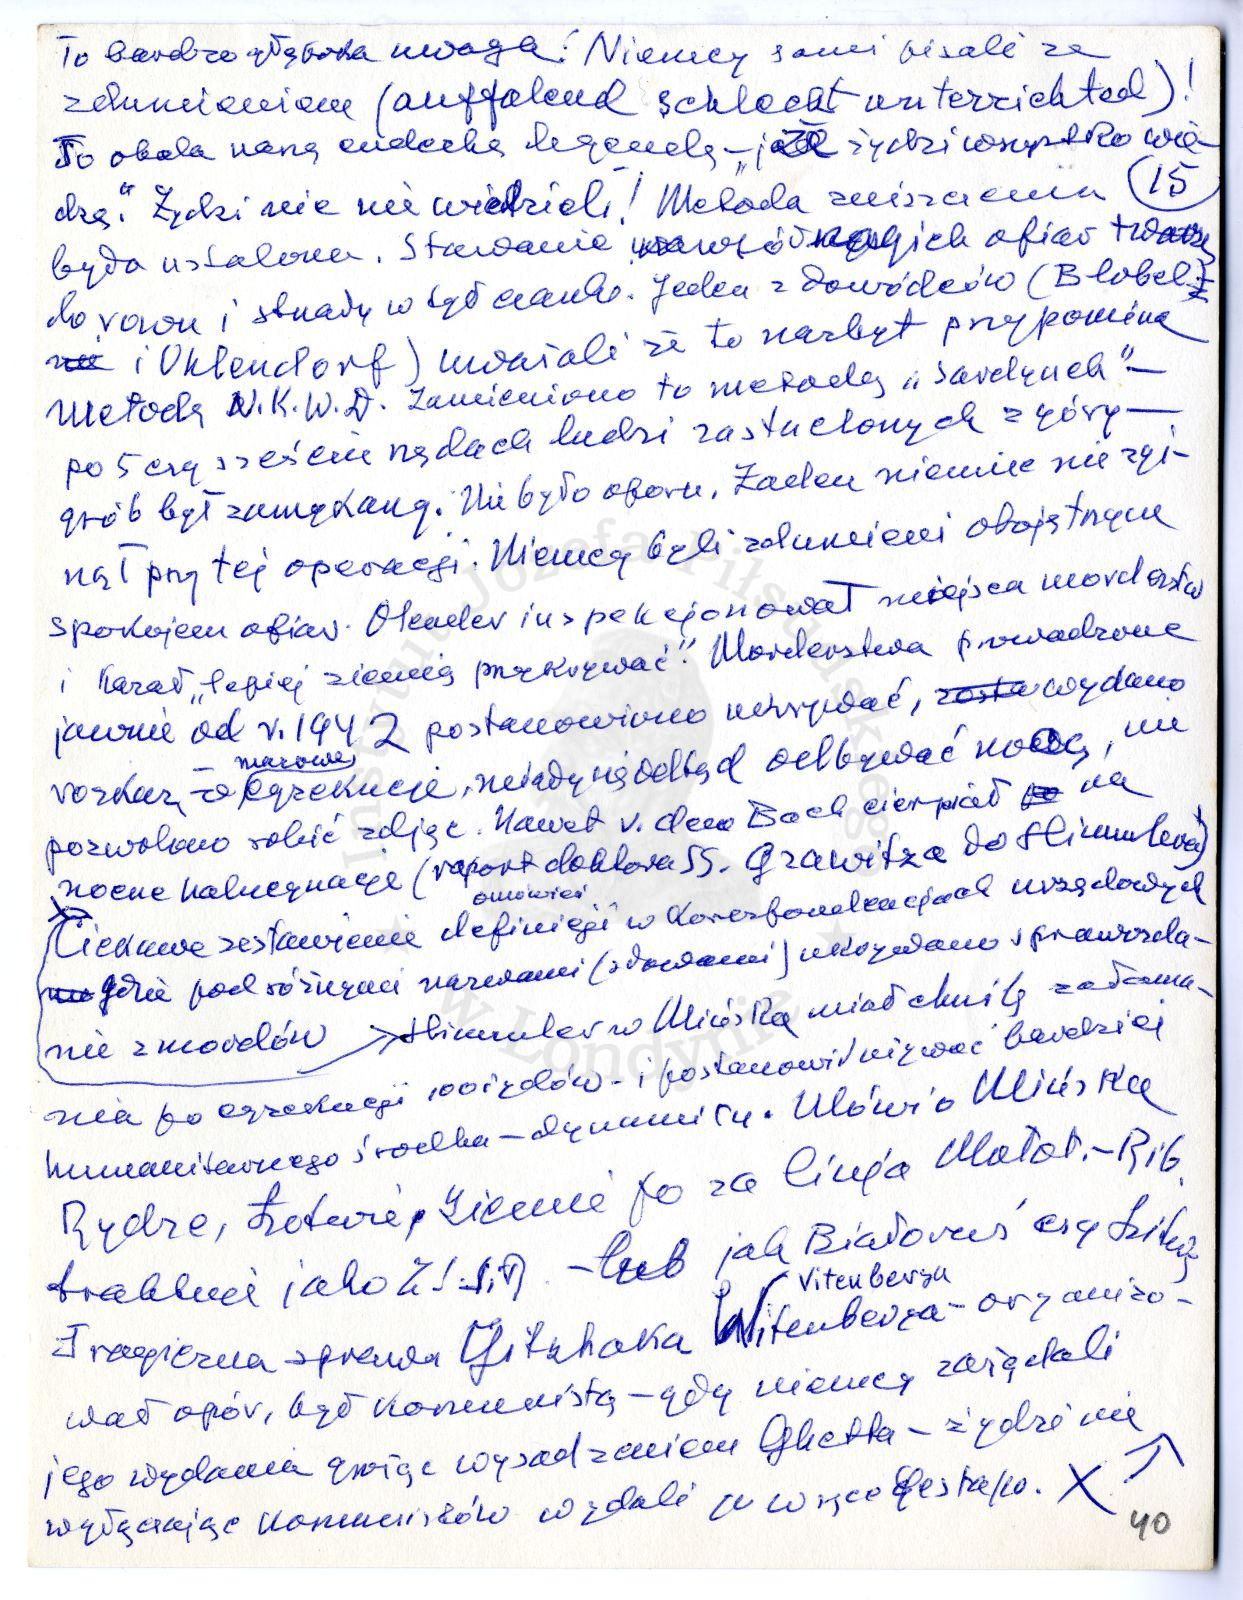 To bardzo głęboka uwaga! Niemcy sami pisali ze
zdumieniem (auffalend schlecht unterrichted)!
To obala naszą endecką legendę – " że żydzi wszystko wie-
dzą." Żydzi nic nie wiedzieli! Metoda zniszczenia (15)
była ustalona. Stawanie nagich ofiar twarzą
do rowu i strzały w tył czaszki. Jeden z dowódców (Blobel
i Ohlendorf) uważali że to nazbyt przypomina
metodą N.K.W.D. Zamieniono to metodą „sardynek" –
po 5 czy sześciu rzędach ludzi zastrzelonych z góry –
grób był zamykany. Nie było oporu. Żaden niemiec nie zgi-
nął przy tej operacji. Niemcy byli zdumieni obojętnym
spokojem ofiar. inspekcjonował miejsca morderstw
i kazał „lepiej ziemią przykrywać". Morderstwa prowadzone
jawnie od r. 1942 postanowiono ukrywać, wydano
rozkaz, – masowe egzekucje, miały się odtąd odbywać nocą, nie
pozwolono robić zdjęć. Nawet v. dem Bach cierpiał na
nocne halucynacje (raport doktora SS. Grawitza do Himmlera)
Ciekawe zestawienie definicji omówień w korespondencjach urzędowych
gdzie pod różnymi nazwami (słowami) ukrywano sprawozda-
nie z mordów Himmler w Mińsku miał chwilę załama-
nia po egzekucji – i postanowił używać bardziej
humanitarnego środka – dynamitu. Mówi o Mińsku
Rydze, Łotwie, Ziemie po za linją Mołot. – Rib.
traktuje jako – lub jak Białoruś czy Litwę
Tragiczna sprawa Witenberga Vitenberga – organizo-
wał opór, był komunistą – gdy niemcy zażądali
jego wydania grożąc wysadzeniem Ghetta – żydzi nie
wyłączając komunistów wydali go w ręce Gestapo. X
40
Instytut Józefa Piłsudskiego
w Londynie